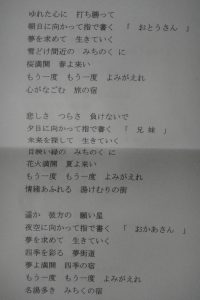 ゆれた心に 打ち勝って
朝日に向かって指で書く 「 おとうさん 」
夢を求めて 生きていく
雪どけ間近の みちのくに
桜満開 春よ来い
もう一度 もう一度 よみがえれ
心がなごむ 旅の宿

悲しさ つらさ 負けないで
夕日に向かって指で書く 「 兄妹 」
未来を探して 生きていく
目映い緑の みちのくに
花火満開 夏よ来い
もう一度 もう一度 よみがえれ
情緒あふれる 湯けむりの街

遥か 彼方の 願い星
夜空に向かって指で書く 「 おかあさん 」
夢を求めて 生きていく
四季を彩る 夢街道
夢よ満開 四季の宿
もう一度 もう一度 よみがえれ
名湯多き みちくの宿